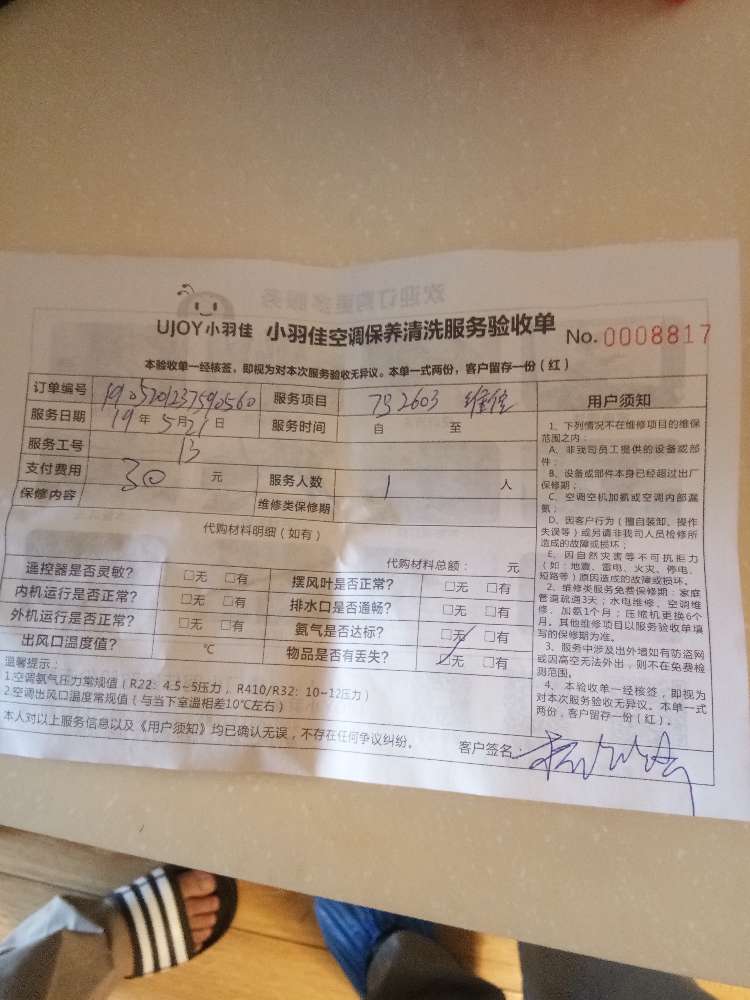 UJOY小羽佳 小羽佳空调保养清洗服务验收单 No.0008817
本验收单一经核签，即视为对本次服务验收无异议。本单一式两份，客户留存一份（红）
订单编号 1905201237590560 服务项目 2603
服务日期 19年5月21日 服务时间 自 至
服务工号 13
支付费用 30 元 服务人数 1 人
保修内容 维修类保修期
代购材料明细（如有）
代购材料总额： 元
遥控器是否灵敏？ □无 □有 摆风叶是否正常？ □无 □有
内机运行是否正常？ □无 □有 排水口是否通畅？ □无 □有
外机运行是否正常？ □无 □有 氨气是否达标？ □无 □有
出风口温度值？ ℃ 物品是否有丢失？ □无 □有
温馨提示：
1.空调氨气压力常规值（R22：4.5~5压力，R410/R32：10~12压力）
2.空调出风口温度常规值（与当下室温相差10℃左右）
本人对以上服务信息以及《用户须知》均已确认无误，不存在任何争议纠纷。 客户签名：
用户须知
1、下列情况不在维修项目的维保
范围之内：
A、非我司员工提供的设备或部
件；
B、设备或部件本身已经超过出厂
保修期；
C、空调空机加氨或空调内部漏
氨；
D、因客户行为（擅自装卸、操作
失误等）或另请非我司人员检修所
造成的故障或损坏；
E、因自然灾害等不可抗拒力
（如：地震、雷电、火灾、停电、
短路等）原因造成的故障或损坏。
2、维修类服务免费保修期：家庭
管道疏通3天；水电维修、空调维
修、加氨1个月；压缩机更换6个
月。其他维修项目以服务验收单填
写的保修期为准。
3、服务中涉及出外墙如有防盗网
或因高空无法外出，则不在免费检
测范围。
4、本验收单一经核签，即视为
对本次服务验收无异议。本单一式
两份，客户留存一份（红）。